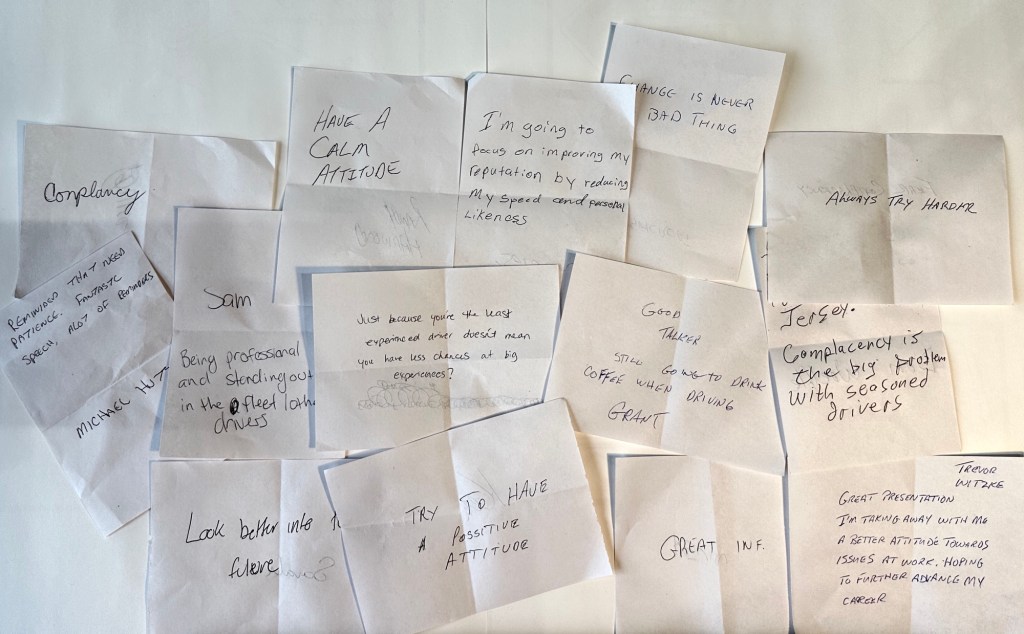 Complancy
HAVE A
CALM
ATTITUDE
I'm going to
focus on improving my
reputation by reducing
My speed and personal
Likeness
CHANGE IS NEVER
BAD THING
ALWAYS TRY HARDER
REMINDED THAT NEED
PATIENCE. FANTASTC
SPEECH, ALOT OF REMINDERS
MICHAEL
Sam
Being professional
and standing out
in the fleet
drivers
Just because you're the least
experienced driver doesn't mean
you have less chances at big
experiences?
GOOD
TALKER
STILL GOING TO DRINK
COFFEE WHEN DRIVING
GRANT
Jersey.
Complacency is
the big problem
with seasoned
drivers
Look better into
future
TRY TO HAVE
A POSSITIVE
ATTITUDE
GREAT INF.
TREVOR
WITZKE
GREAT PRESENTATION
I'M TAKING AWAY WITH ME
A BETTER ATTITUDE TOWARDS
ISSUES AT WORK. HOPING
TO FURTHER ADVANCE MY
CAREER